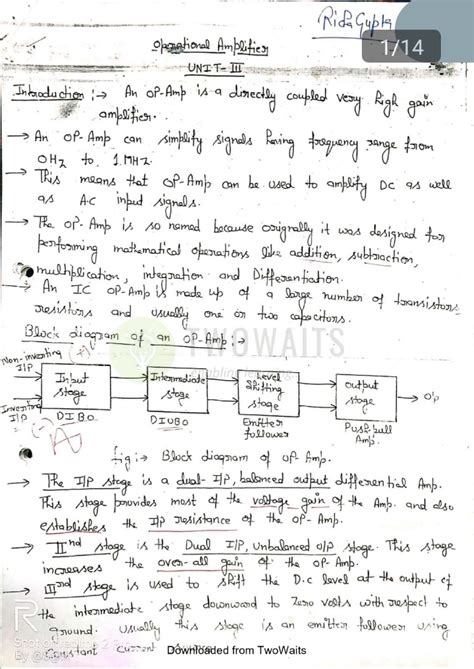 Rida Gupta
1/14
Operational Amplifier
UNIT-III
Introduction :→ An OP-Amp is a directly coupled very high gain
amplifier.
→ An OP-Amp can simplify signals having frequency range from
0Hz to 1MHz.
→ This means that OP-Amp can be used to amplify DC as well
as AC input signals.
→ The OP-Amp is so named because orignally it was designed for
performing mathematical operations like addition, subtraction,
multiplication, integration and Differentiation.
→ An IC OP-Amp is made up of a large number of transistors
resistors and usually one or two capacitors.
Block diagram of an OP-Amp :→
TWOWAITS
Non-inverting (+)
I/P
Inverting
I/P (-)
Input
stage
DIBO
Intermediate
stage
DIUBO
Level
Shifting
stage
Emitter
follower
output
stage
Push-bull
Amp.
O/P
fig :→ Block diagram of OP-Amp.
→ The I/P stage is a dual-I/P, balanced output differential Amp.
This stage provides most of the voltage gain of the Amp. and also
establishes the I/P resistance of the OP-Amp.
→ IInd stage is the Dual I/P, Unbalanced O/P stage. This stage
increases the over-all gain of the OP-Amp.
→ IIIrd stage is used to shift the D.C level at the output of
the intermediate stage downward to Zero volts with respect to
ground. Usually this stage is an emitter follower using
Constant current
Downloaded from TwoWaits